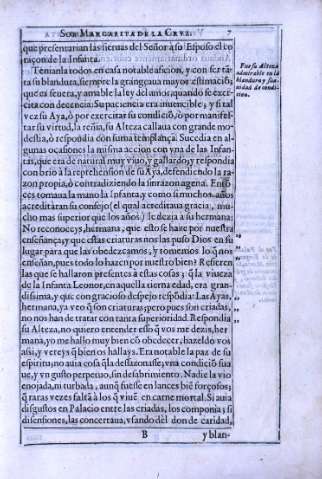 SOR MARGARITA DE LA CRVZ. 7
que presentarian las siervas del Señor a su Esposo el co
raçon de la Infanta.
Tenianla todos en casa notable aficion, y con ser tã-
ta su blandura, siempre la grangeaua mayor estimaciõ:
que es seuera, y amable la ley del amor, quando se exer-
cita con decencia: Su paciencia era inuencible; y si tal
vez su Aya, ò por exercitar su condiciõ, ò por manifes-
tar su virtud, la renia, su Alteza callaua con grande mo-
destia, ò respondia con suma templança. Sucedia en al-
gunas ocasiones la misma accion con vna de las Infan-
tas, que era de natural muy viuo, y gallardo; y respondia
con brio à la reprehension de su Aya, defendiendo la ra-
zon propia, ò contradiziendo la sinrazon agena. Entõ-
ces tomaua la mano la Infanta, y como si muchos años
acreditàran su consejo (el qual acreditaua gracia, mu-
cho mas superior que los años) le dezia a su hermana:
No reconoceys, hermana, que esto se haze por nuestra
enseñança; y que estas criaturas nos las puso Dios en su
lugar para que las obedezcamos, y tomemos lo q̃ nos
enseñan, pues todo lo haze por nuestro bien? Refieren
las que se hallaron presentes à estas cosas, q̃ la viueza
de la Infanta Leonor, en aquella tierna edad, era gran-
dissima, y que con gracioso despejo respõdia: Las Ayas,
hermana, ya veo q̃ son criaturas; pero pues son criadas,
no nos han de tratar con tanta superioridad. Respondia
su Alteza, no quiero entender esso q̃ vos me dezis, her-
mana, yo me hallo muy bien cõ obedecer, hazeldo vos
assi, y vereys q̃ bien os hallays. Era notable la paz de su
espiritu; no auia cosa q̃ la desazonasse; vna condiciõ sua
ue, y vn gusto perpetuo, sin desabrimiento. Nadie la vio
enojada, ni turbada, aunq̃ fuesse en lances biẽ forçosos;
q̃ raras vezes faltã à los q̃ viuẽ en carne mortal. Si auia
disgustos en Palacio entre las criadas, los componia; si
disensiones, las concertaua, vsando del don de caridad,
B y blan-
Fue su Alteza
admirable en la
blandura y sua-
uidad de condi-
cion.